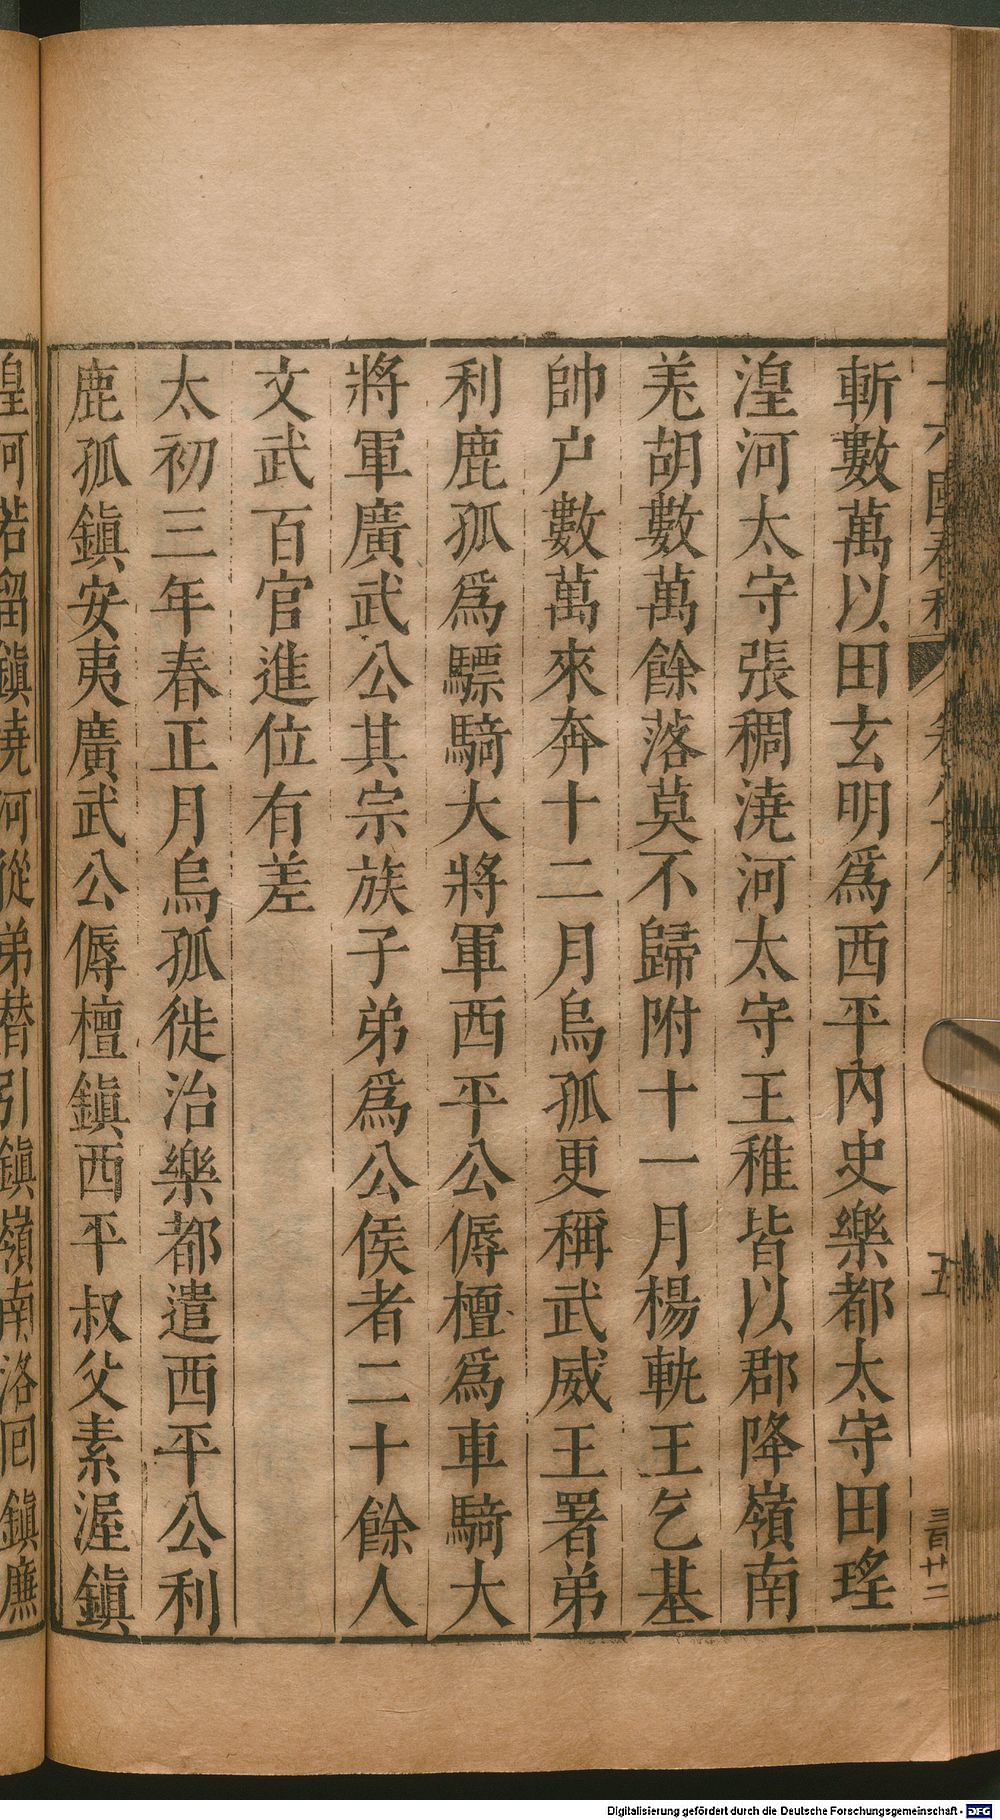 斬數萬以田玄明爲西平內史樂都太守田瑤
湟河太守張稠澆河太守王稚皆以郡降嶺南
羌胡數萬餘落莫不歸附十一月楊軌王乞基
帥户數萬來奔十二月烏孤更稱武威王署弟
利鹿孤爲驃騎大將軍西平公傉檀爲車騎大
將軍廣武公其宗族子弟爲公侯者二十餘人
文武百官進位有差
太初三年春正月烏孤徙治樂都遣西平公利
鹿孤鎮安夷廣武公傉檀鎮西平叔父素渥鎮
湟河若留鎮澆河從弟替引鎮嶺南洛回鎮廉
五
三百廿二
Digitalisierung gefördert durch die Deutsche Forschungsgemeinschaft - DFG